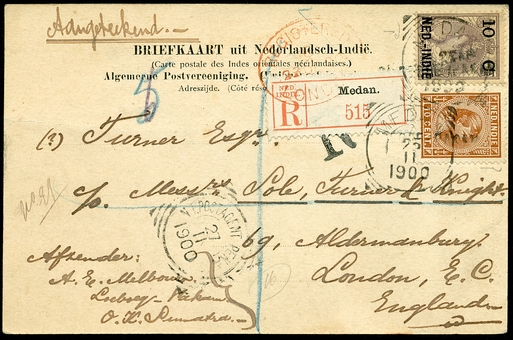 Aangeteekend.—
BRIEFKAART uit Nederlandsch-Indië.
(Carte postale des Indes orientales néerlandaises.)
Algemeene Postvereeniging.
Adreszijde. (Côté
10 C
NED.-INDIË
NED. INDIË
Medan.
R
515
NED. INDIE
10 CENT.
(?) Turner Esqr.
23
11
1900
R
c/o Messrs Sole, Turner & Knight
POSTAGENT
27
11
1900
69, Aldermanbury.
London, E. C.
England
Afzender:
A. E. Melbourn
O. K. Sumatra.—
5
16